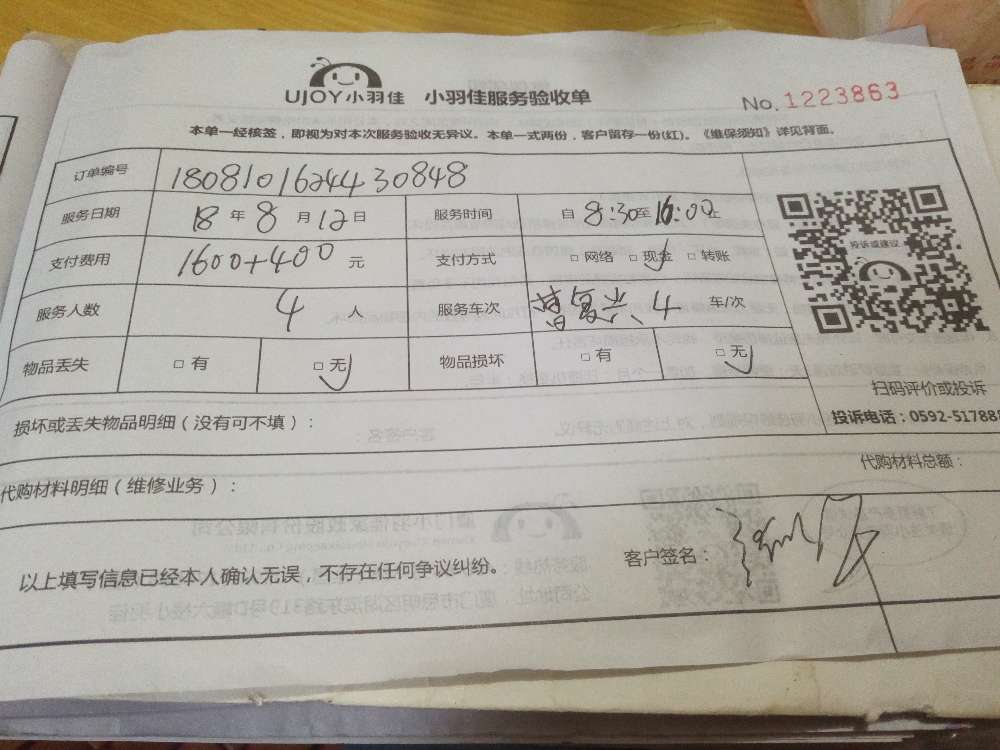 UJOY小羽佳 小羽佳服务验收单
No.1223863
本单一经核签，即视为对本次服务验收无异议。本单一式两份，客户留存一份(红)。《维保须知》详见背面。
订单编号 180810162443 0848
服务日期 18 年 8 月 12 日 服务时间 自 8:30 至 16:00 止
支付费用 1600+400 元 支付方式 □ 网络 □ 现金 □ 转账
服务人数 4 人 服务车次 4 车/次
物品丢失 □ 有 □ 无 物品损坏 □ 有 □ 无
投诉或建议
扫码评价或投诉
投诉电话：0592-51788
损坏或丢失物品明细（没有可不填）：
代购材料明细（维修业务）： 代购材料总额：
以上填写信息已经本人确认无误，不存在任何争议纠纷。 客户签名：